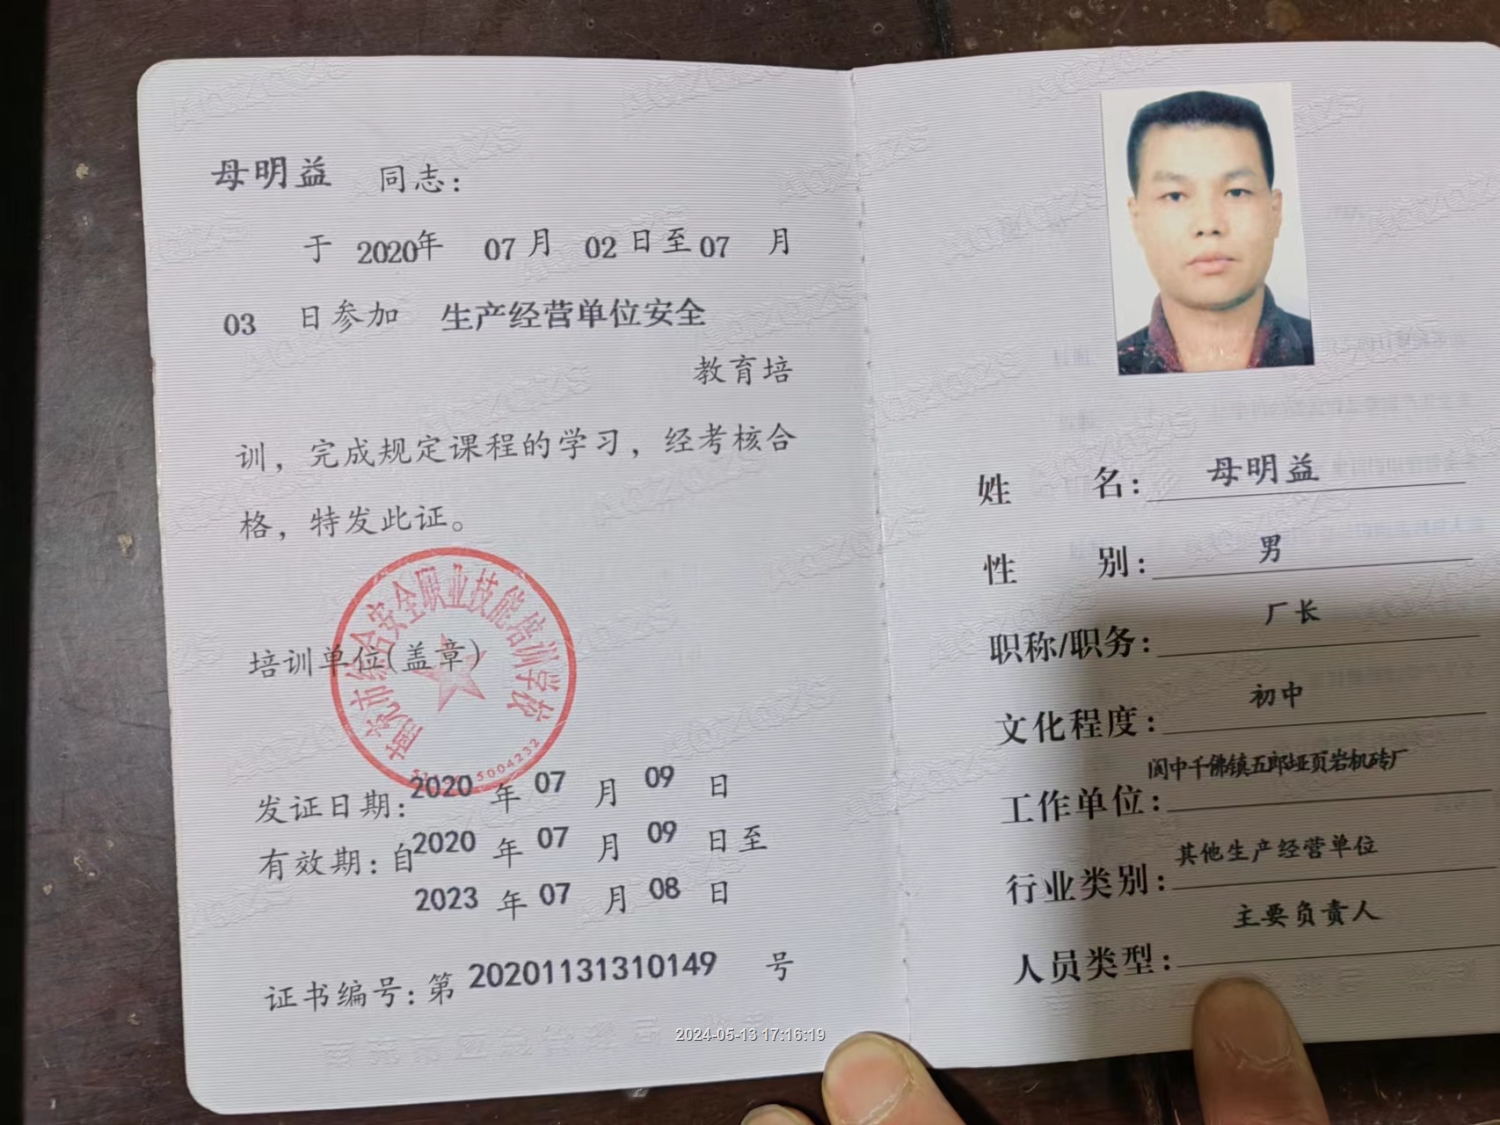 母明益 同志：
于 2020年 07 月 02 日至 07 月
03 日参加 生产经营单位安全
教育培
训，完成规定课程的学习，经考核合
格，特发此证。
南充市综合安全职业技能培训学校
培训单位(盖章)
5004232
发证日期：2020 年 07 月 09 日
有效期：自2020 年 07 月 09 日至
2023 年 07 月 08 日
证书编号：第 20201131310149 号
姓 名：母明益
性 别：男
职称/职务：厂长
文化程度：初中
工作单位：阆中千佛镇五郎垭页岩机砖厂
行业类别：其他生产经营单位
人员类型：主要负责人
AQZGZS
2024-05-13 17:16:19